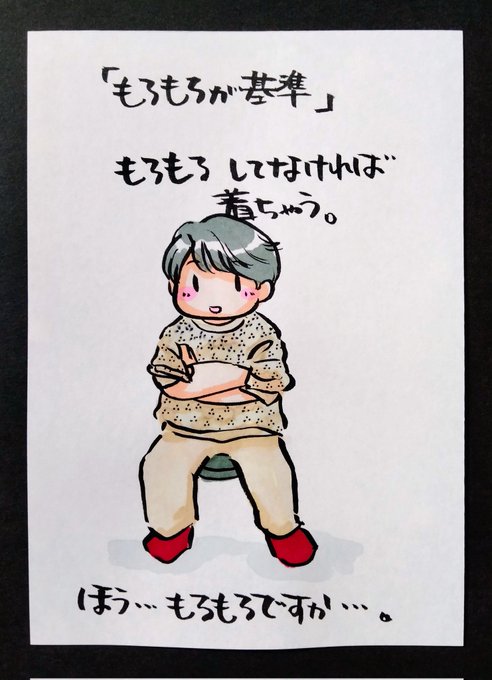 「もろもろが基準」
もろもろ してなければ
着ちゃう。
ほう…もろもろですか…。